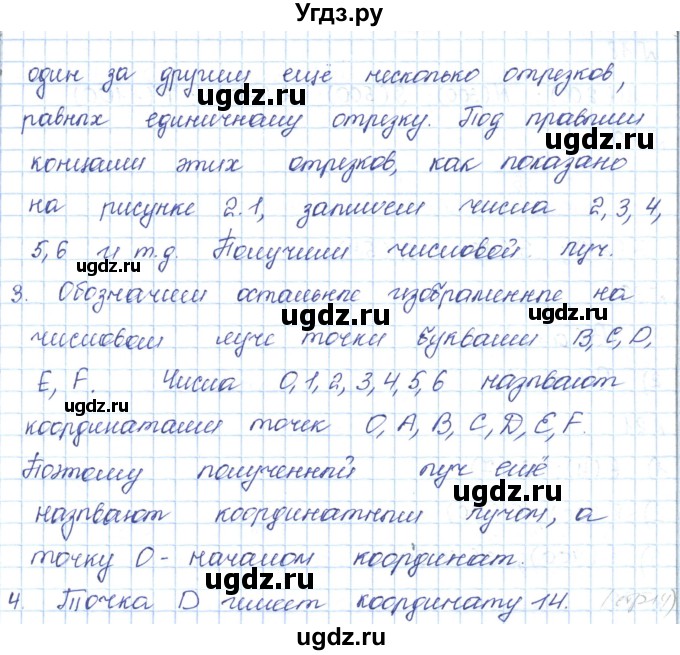 Угдз.ру
один за другим ещё несколько отрезков,
равных единичному отрезку. Под правыми
концами этих отрезков, как показано
на рисунке 2.1, запишем числа 2, 3, 4,
5, 6 и т.д. Получим числовой луч.
3. Обозначим остальные изображенные на
числовом луче точки буквами B, C, D,
E, F. Числа 0, 1, 2, 3, 4, 5, 6 называют
координатами точек O, A, B, C, D, E, F.
Поэтому полученный луч ещё
называют координатным лучом, а
точку O - началом координат.
4. Точка D имеет координату 14. (стр 14)
ugdz.ru
ugdz.ru
ugdz.ru
ugdz.ru
ugdz.ru
ugdz.ru
ugdz.ru
ugdz.ru
ugdz.ru
ugdz.ru
ugdz.ru